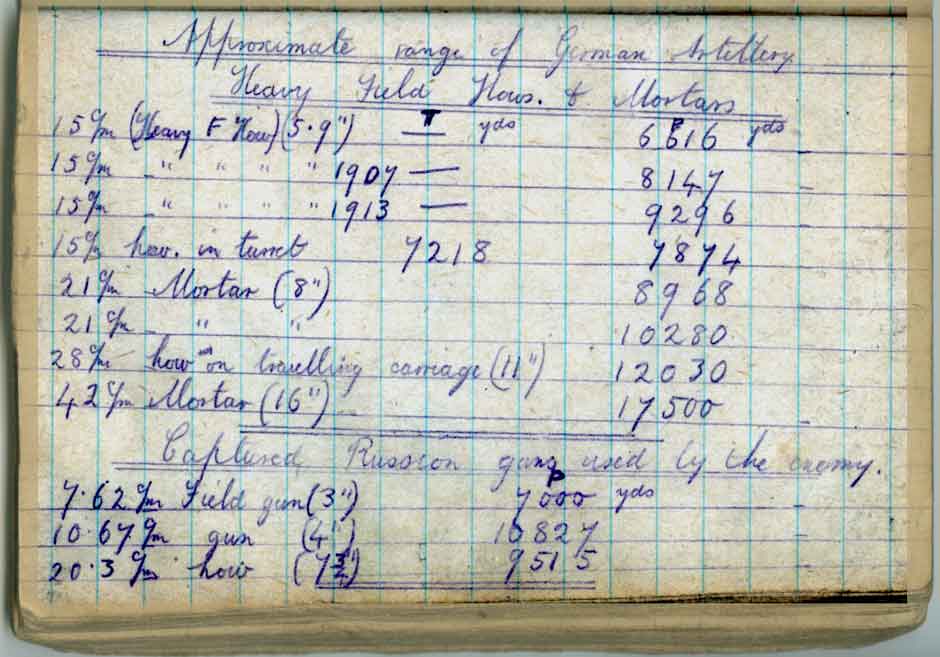 Approximate range of German Artillery.
Heavy Field Hows. & Mortars
15 c/m (Heavy F How) (5.9") — T yds 6616 P yds
15 c/m " " " " 1907 — 8147
15 c/m " " " " 1913 — 9296
15 c/m how. in turret 7218 7874
21 c/m Mortar (8") 8968
21 c/m " " 10280
28 c/m how on travelling carriage (11") 12030
42 c/m Mortar (16") 17500
Captured Russian guns used by the enemy.
7.62 c/m Field gun (3") P 7000 yds
10.67 c/m gun (4") 10827
20.3 c/m how 9515